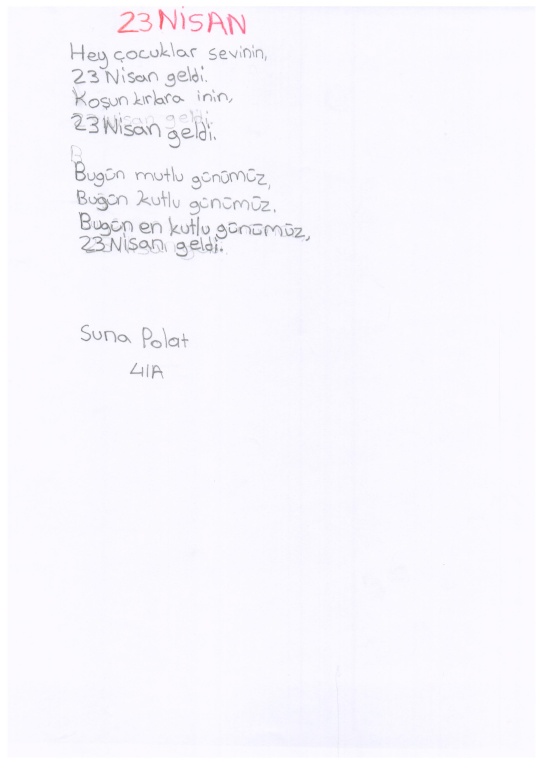 23 NİSAN
Hey çocuklar sevinin,
23 Nisan geldi.
Koşun kırlara inin,
23 Nisan geldi.
Bugün mutlu günümüz,
Bugün kutlu günümüz.
Bugün en kutlu günümüz,
23 Nisan geldi.
Suna Polat
4/A